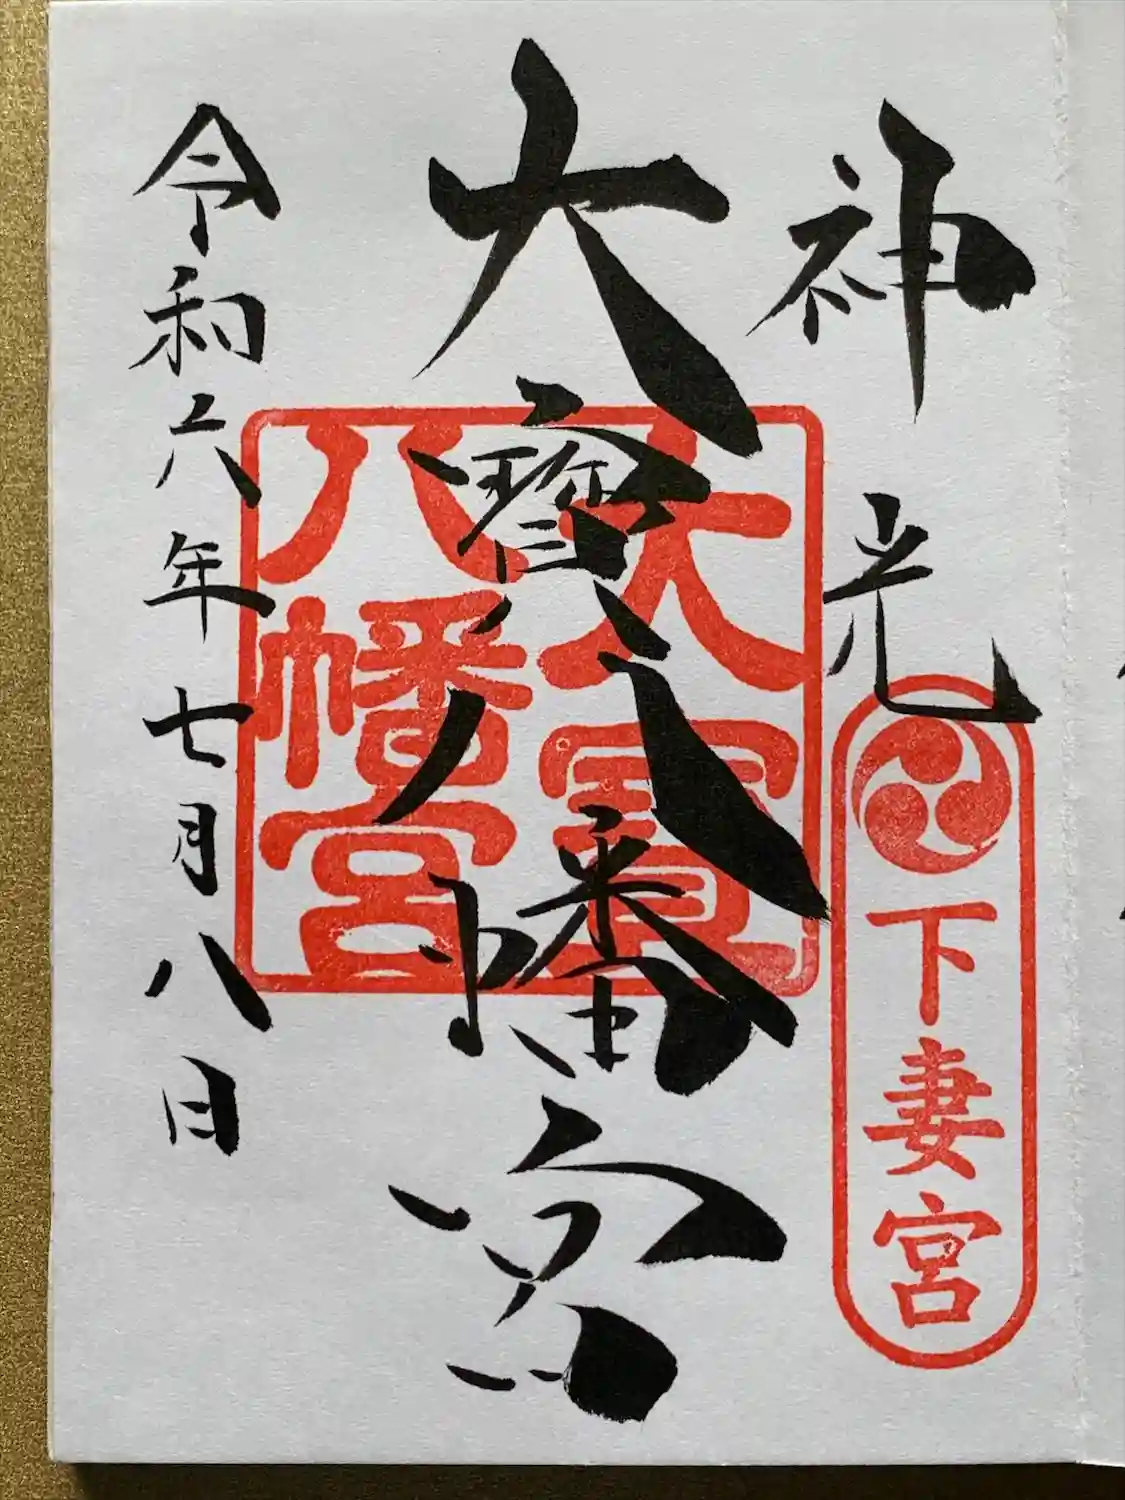 神光
下妻宮
大寳八幡宮
大寳
八幡宮
令和六年七月八日